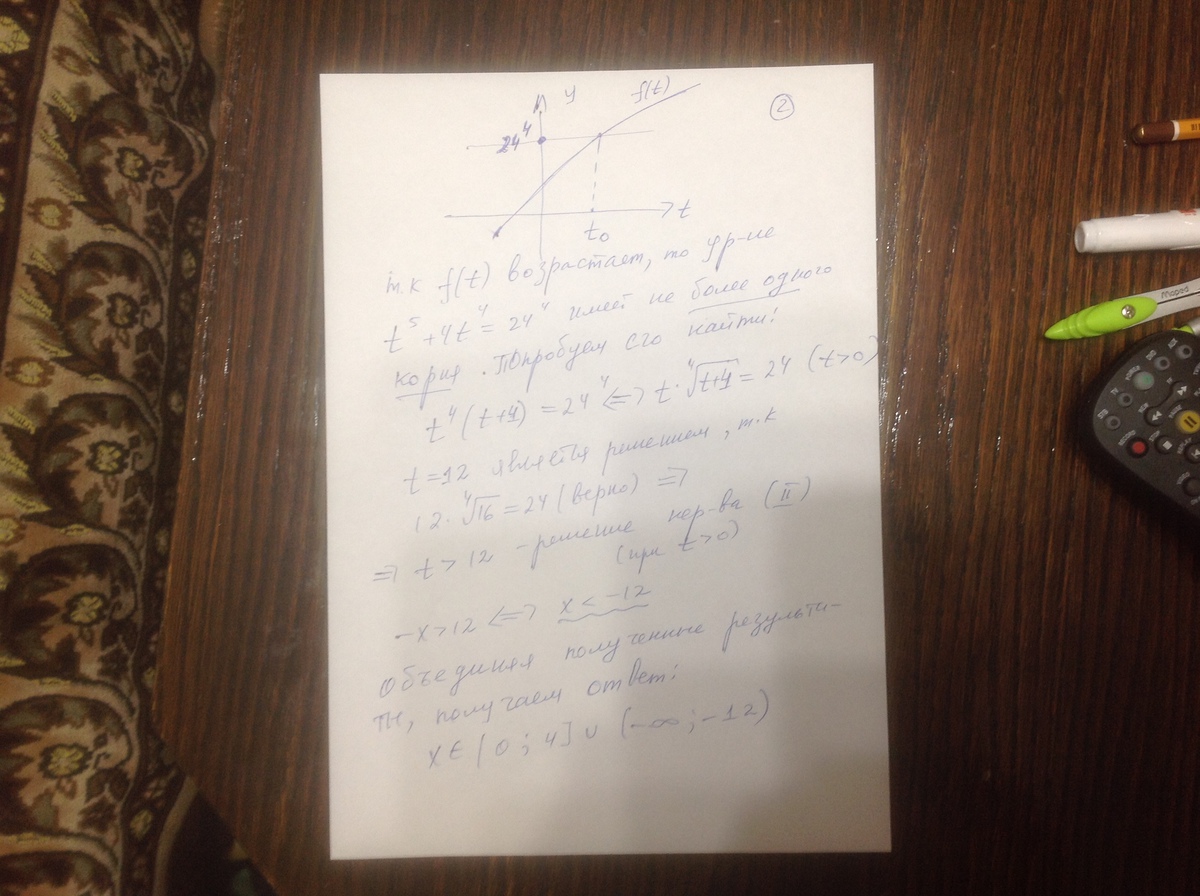 y
f(t)
②
24⁴
t
t₀
т.к f(t) возрастает, то ур-ие
t⁵ + 4t⁴ = 24⁴ имеет не более одного
корня. Попробуем его найти!
t⁴(t+4) = 24⁴ <=> t·⁴√(t+4) = 24 (t>0)
t=12 является решением, т.к
12·⁴√16 = 24 (верно) =>
=> t > 12 - решение нер-ва (II)
(при t>0)
-x>12 <=> x < -12
Объединяя полученные результа-
ты, получаем ответ:
x ∈ [0; 4] ∪ (-∞; -12)
Maped